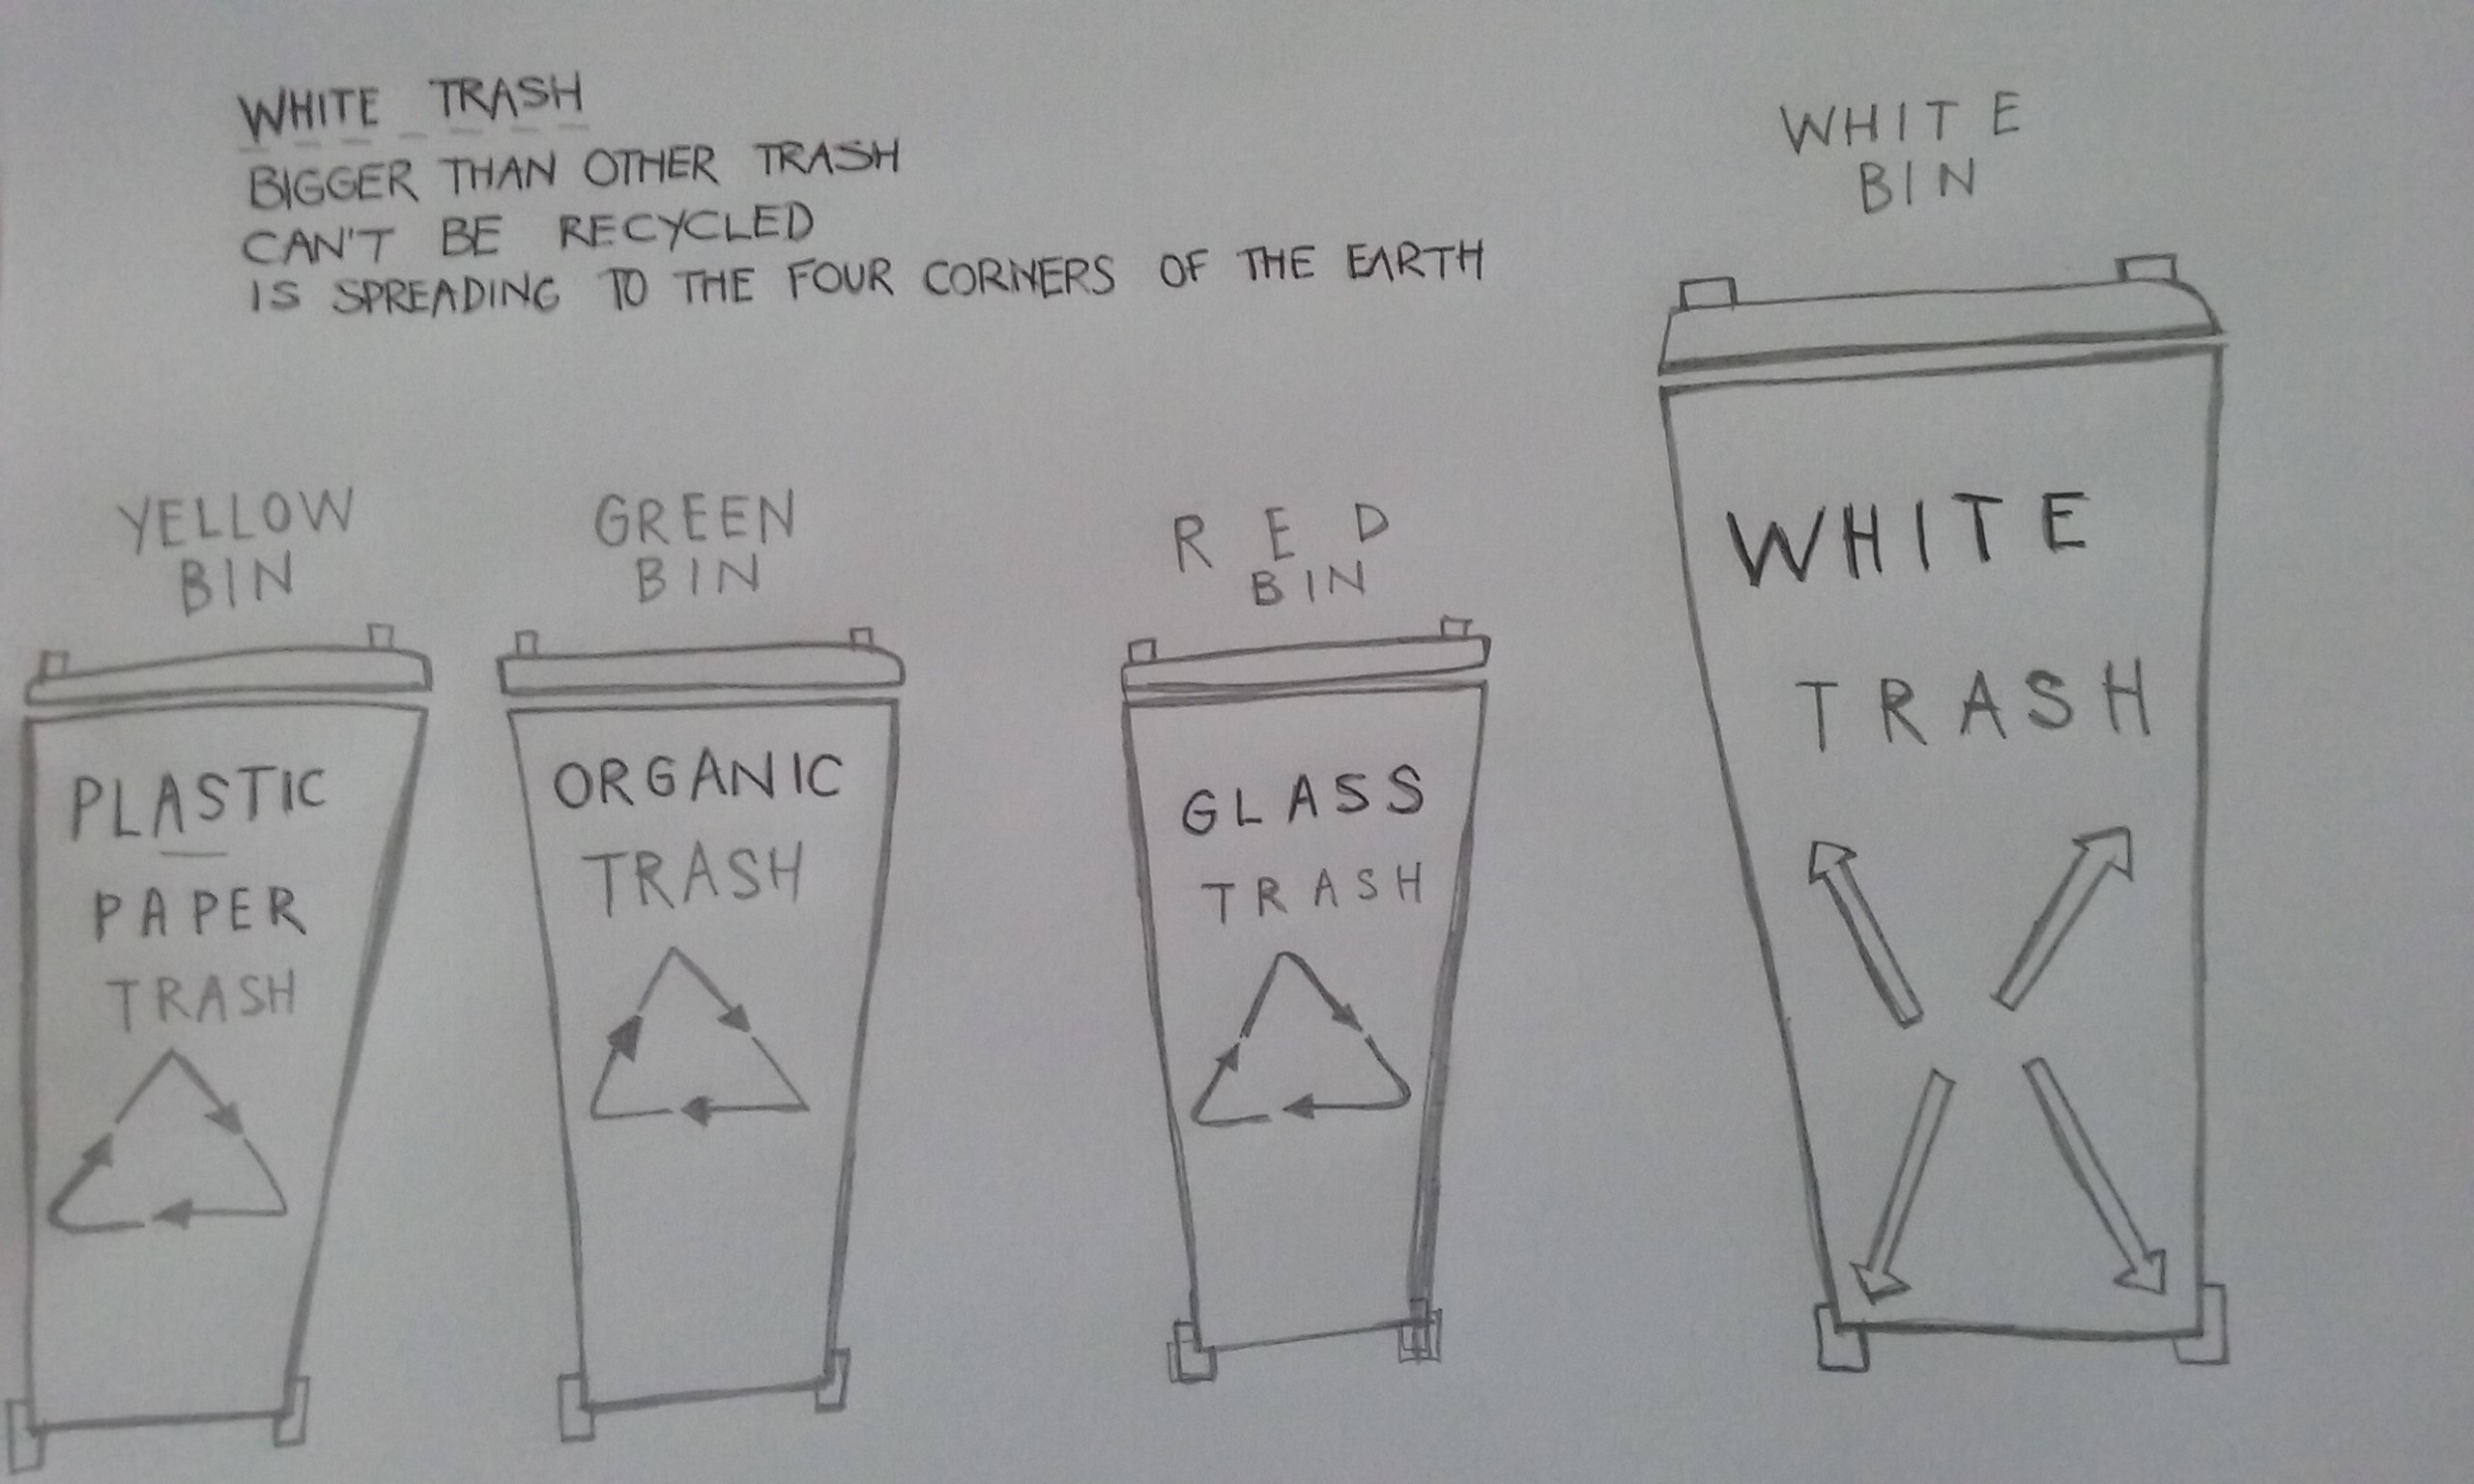 WHITE TRASH
BIGGER THAN OTHER TRASH
CAN'T BE RECYCLED
IS SPREADING TO THE FOUR CORNERS OF THE EARTH
YELLOW
BIN
PLASTIC
PAPER
TRASH
GREEN
BIN
ORGANIC
TRASH
RED
BIN
GLASS
TRASH
WHITE
BIN
WHITE
TRASH